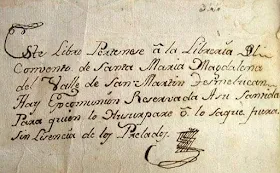 Este Libro Pertenese â la Libreria Dl
Convento de Santa Maria Magdalena
del Valle de San Martin
Hay Excomunion Reservada Asu Santidad
Para quien lo Husurpare ô lo saque fuera
Sin Lisencia de los Prelados